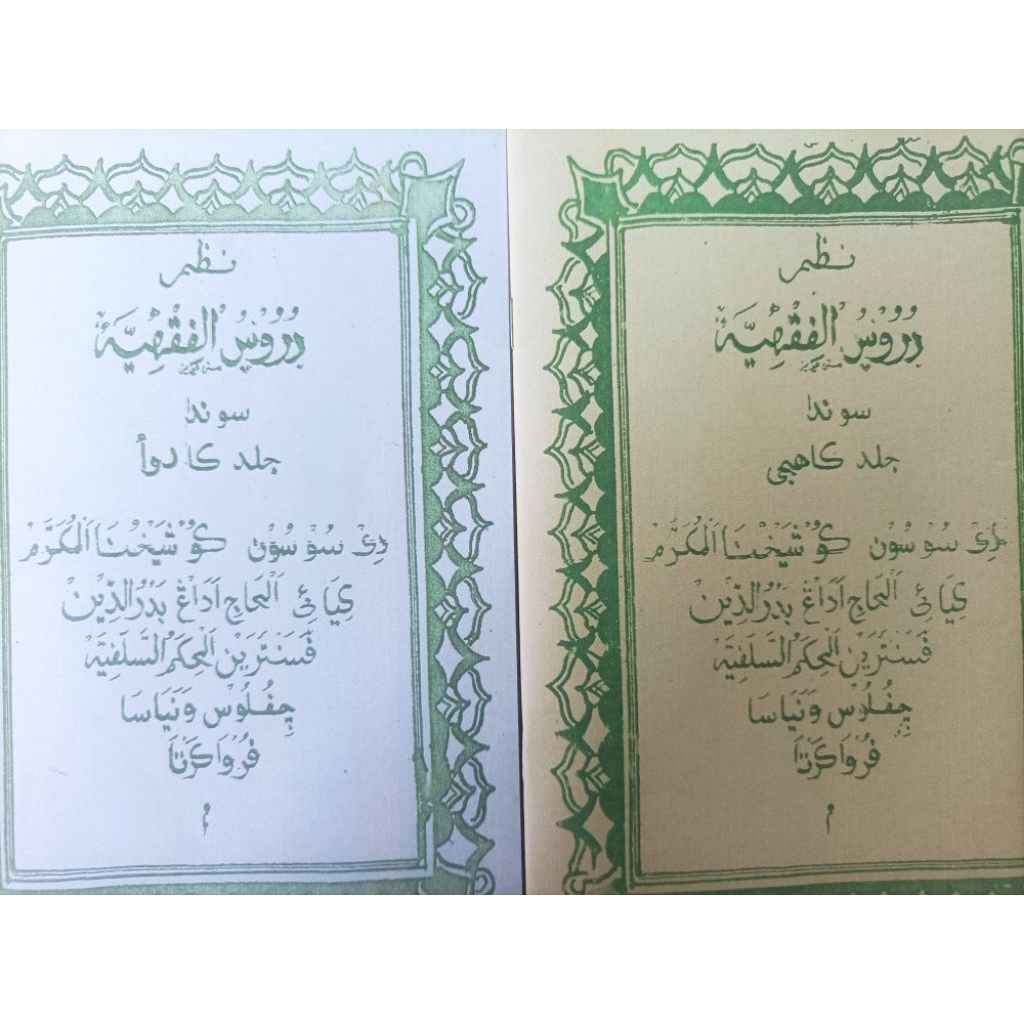 نظم
دُرُوْسُ الْفِقْهِيَّةْ
سوندا
جلد كادوأ
دِيْ سُوْسُوْن كُوْ شَيْخُنَا الْمُكَرَّمْ
كِيَائِي اَلْحَاج اَدَاڠ بَدْرُ الدِّيْن
فَسَنْتَرَيْن الْحِكَمُ السَّلَفِيَّةْ
چِفُلُوْس وَنَيَاسَا
فُرْوَاكَرْتَا
نظم
دُرُوْسُ الْفِقْهِيَّةْ
سوندا
جلد كاهيجي
دِيْ سُوْسُوْن كُوْ شَيْخُنَا الْمُكَرَّمْ
كِيَائِي اَلْحَاج اَدَاڠ بَدْرُ الدِّيْن
فَسَنْتَرَيْن الْحِكَمُ السَّلَفِيَّةْ
چِفُلُوْس وَنَيَاسَا
فُرْوَاكَرْتَا